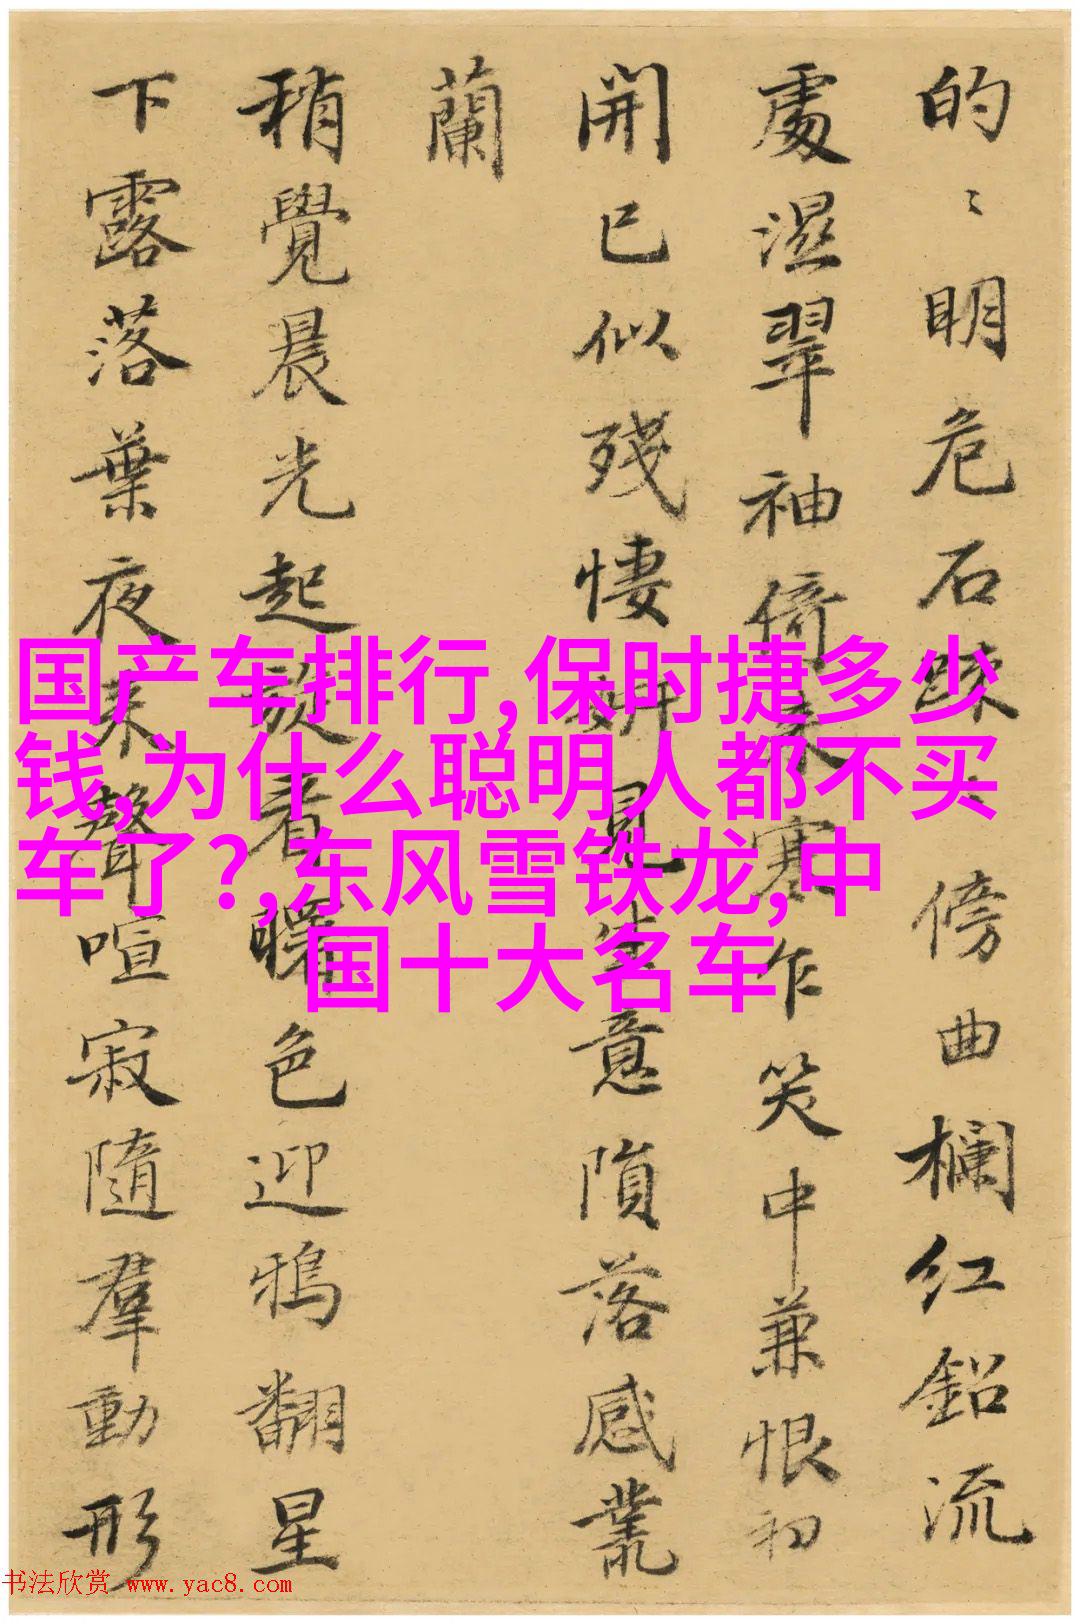 的〻明危石疎〻傍曲欄红鉛流
處濕翠袖倚来寒乍笑中兼恨初
開已似残悽
見生意隕落感叢
蘭
稍覺晨光起旋看曙色迎鴉翻星
下露落葉夜来聲喧寂隨羣動形
国产车排行,保时捷多少
钱,为什么聪明人都不买
车了?,东风雪铁龙,中
国十大名车
书法欣赏 www.yac8.com